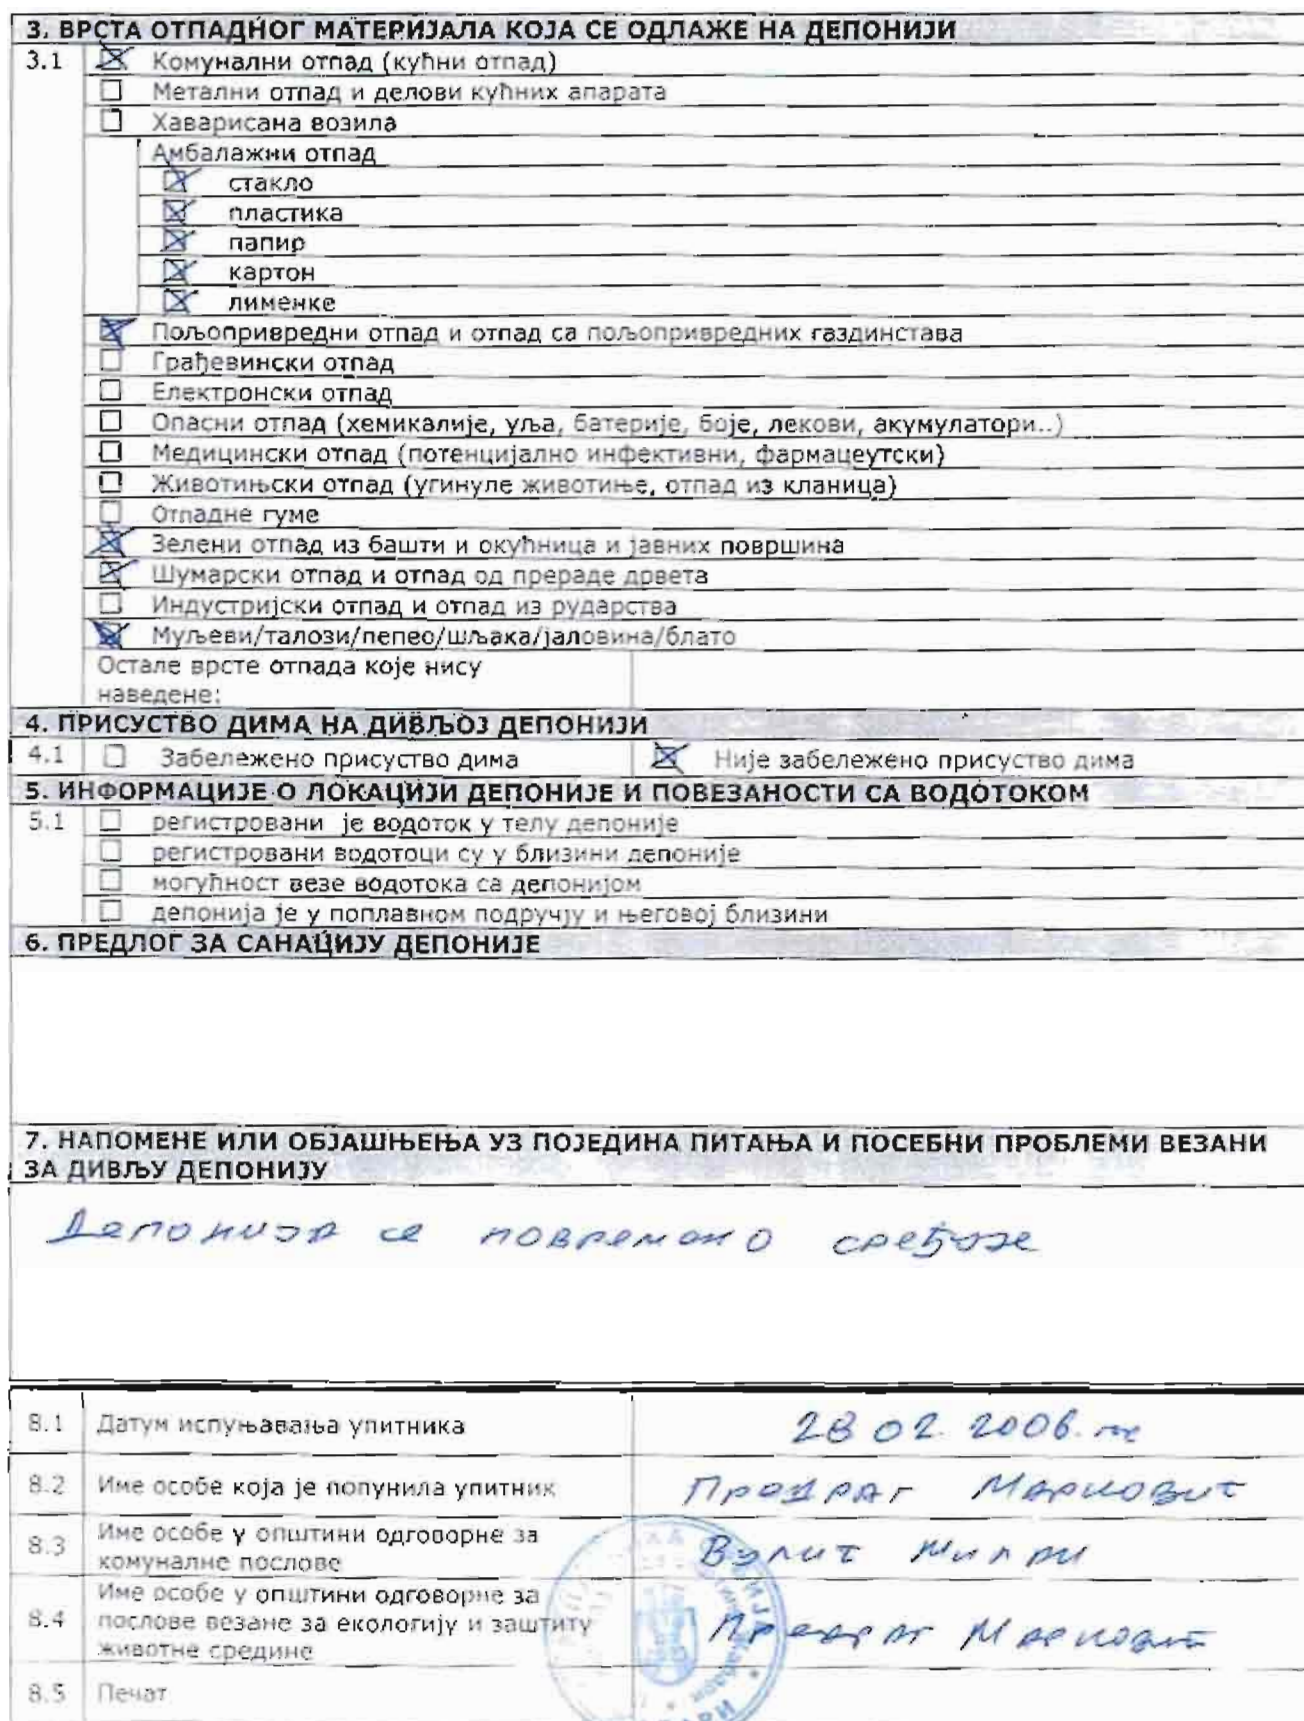 3. ВРСТА ОТПАДНОГ МАТЕРИЈАЛА КОЈА СЕ ОДЛАЖЕ НА ДЕПОНИЈИ
3.1 ☒ Комунални отпад (кућни отпад)
☐ Метални отпад и делови кућних апарата
☐ Хаварисана возила
Амбалажни отпад
☒ стакло
☒ пластика
☒ папир
☒ картон
☒ лименке
☒ Пољопривредни отпад и отпад са пољопривредних газдинстава
☐ Грађевински отпад
☐ Електронски отпад
☐ Опасни отпад (хемикалије, уља, батерије, боје, лекови, акумулатори..)
☐ Медицински отпад (потенцијално инфективни, фармацеутски)
☐ Животињски отпад (угинуле животиње, отпад из кланица)
☐ Отпадне гуме
☒ Зелени отпад из башти и окућница и јавних површина
☒ Шумарски отпад и отпад од прераде дрвета
☐ Индустријски отпад и отпад из рударства
☒ Муљеви/талози/пепео/шљака/јаловина/блато
Остале врсте отпада које нису
наведене:
4. ПРИСУСТВО ДИМА НА ДИВЉОЈ ДЕПОНИЈИ
4.1 ☐ Забележено присуство дима ☒ Није забележено присуство дима
5. ИНФОРМАЦИЈЕ О ЛОКАЦИЈИ ДЕПОНИЈЕ И ПОВЕЗАНОСТИ СА ВОДОТОКОМ
5.1 ☐ регистровани је водоток у телу депоније
☐ регистровани водотоци су у близини депоније
☐ могућност везе водотока са депонијом
☐ депонија је у поплавном подручју и његовој близини
6. ПРЕДЛОГ ЗА САНАЦИЈУ ДЕПОНИЈЕ
7. НАПОМЕНЕ ИЛИ ОБЈАШЊЕЊА УЗ ПОЈЕДИНА ПИТАЊА И ПОСЕБНИ ПРОБЛЕМИ ВЕЗАНИ
ЗА ДИВЉУ ДЕПОНИЈУ
Депонија се повремено сређује
8.1 Датум испуњавања упитника 28 02. 2006.
8.2 Име особе која је попунила упитник Предраг Марковић
8.3 Име особе у општини одговорне за
комуналне послове
8.4 Име особе у општини одговорне за
послове везане за екологију и заштиту
животне средине Предраг Марковић
8.5 Печат